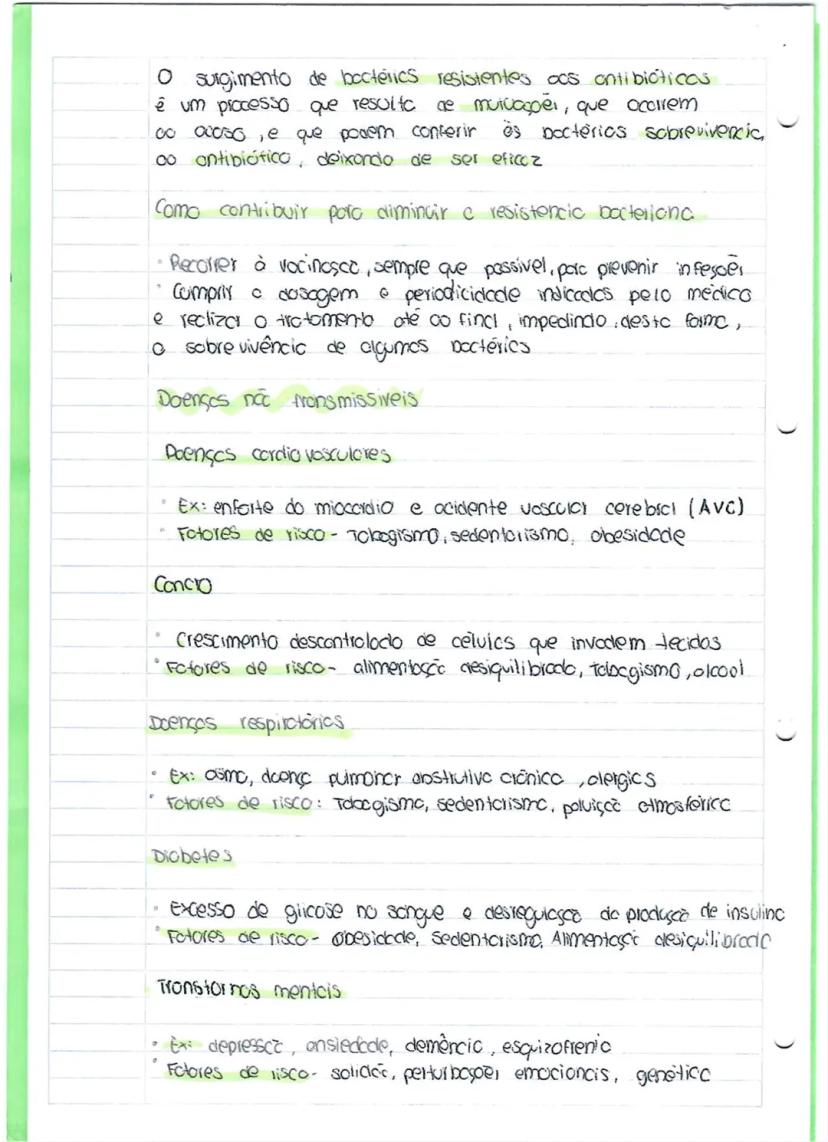 O surgimento de bactérias resistentes aos antibióticos
é um processo que resulta de mutuações, que ocorrem
ao acaso, e que podem conferir às bactérias sobrevivencia,
ao antibiótico, deixando de ser eficaz
Como contribuir para diminuir a resistencia bacteriana
• Recorrer à vacinação, sempre que possivel, para prevenir infeções
• Cumprir a dosagem e periodicidade indicadas pelo médico
e realizar o tratamento até ao final, impedindo, desta forma,
a sobrevivência de algumas bactérias
Doenças não transmissiveis
Doenças cardiovasculares
• Ex: enfarte do miocardio e acidente vascular cerebral (AVC)
• Fatores de risco - Tabagismo, sedentarismo, obesidade
Cancro
• Crescimento descontrolado de células que invadem tecidos
• Fatores de risco - alimentação desiquilibrada, tabagismo, alcool
Doenças respiratórias
• Ex: asma, doença pulmonar obstrutiva crónica, alergias
• Fatores de risco: Tabagismo, sedentarismo, poluição atmosférica
Diabetes
• Excesso de glicose no sangue e desregulação da produção de insulina
• Fatores de risco - Obesidade, Sedentarismo, Alimentação desiquilibrada
Transtornos mentais
• Ex: depressão, ansiedade, demência, esquizofrenia
• Fatores de risco - solidão, perturbações emocionais, genética